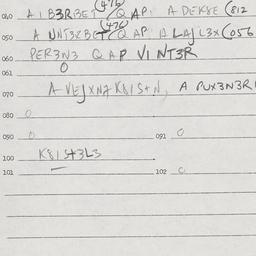 (476)
040 A I B3RBET / Q AP. A DEK8E (812
(476)
050 A UNT3RBET / Q AP A LAJL3X (056
060 PER3N3 Q AP VINT3R
061 0
070 A VEJXN7 K8IS+N, A PUX3N3RI
080 0
090 0 091 0
100 K8IS+3L3
101 102 0